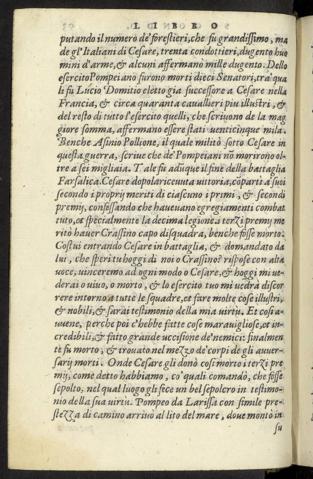 LIBRO
putando il numero de' forestieri, che fu grandissimo, ma
de gl'Italiani di Cesare, trenta condottieri, dugento huo
mini d'arme, & alcuni affermano mille dugento. Dello
esercito Pompeiano furono morti dieci Senatori, tra' qua
li fu Lucio Domitio eletto gia successore a Cesare nella
Francia, & circa quaranta cauallieri piu illustri, &
del resto di tutto l'esercito quelli, che scriuono de la mag
giore somma, affermano essere stati uenticinque mila.
Benche Asinio Pollione, il quale militò sotto Cesare in
questa guerra, scriue che de' Pompeiani nõ morirono ol
tre a sei migliaia. Tale fu adũque il fine della battaglia
Farsalica. Cesare dopo la riceuuta uittoria, cõpartì a suoi
secondo i proprij meriti di ciascuno i primi, & secondi
premij, confessando che hauteuano egregiamenti combat
tuto, & spetialmente la decima legione. I terzi premij me
ritò hauer Crassino capo di squadra, benche fosse morto.
Costui entrando Cesare in battaglia, & domandato da
lui, che speri tu hoggi di noi o Crassino? rispose con alta
uoce, uinceremo ad ogni modo o Cesare, & hoggi mi ue-
derai o uiuo, o morto, & lo esercito tuo mi uedrà discor
rere intorno a tutte le squadre, et fare molte cose illustri,
& nobili, & sarai testimonio della mia uirtù. Et cosi a-
uuene, perche poi c'hebbe fatte cose marauigliose, et in-
credibili, & fatto grande uccisione de' nemici: finalmen
te fu morto, & trouato nel mezzo de' corpi de gli auuer-
sarij morti. Onde Cesare gli donò cosi morto i terzi pre
mij, come detto habbiamo, co' quali comandò, che fosse
sepolto, nel qual luogo gli fece un bel sepolcro in testimo-
nio della sua uirtù. Pompeo da Larissa con simile pre-
stezza di camino arriuò al lito del mare, doue montò in
su